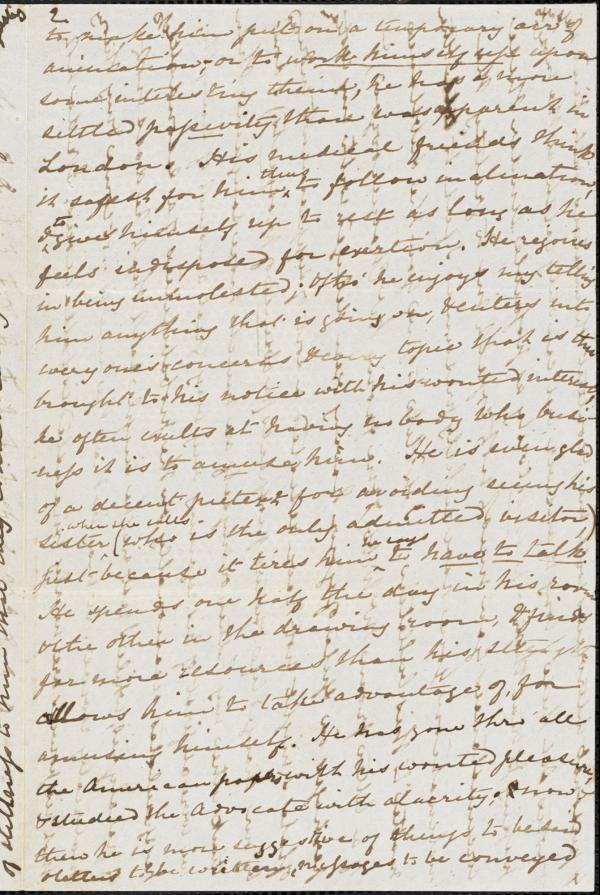 2
to make him put on a temporary air of
animation, or to work himself up upon
some interesting theme, he has a more
settled passivity than was apparent in
London. His medical friends think
it safest for him thus to follow inclination,
& to give himself up to rest as long as he
feels indisposed for exertion. He rejoices
in being unmolested; & tho' he enjoys my telling
him anything that is going on, & enters into
every one's concerns & every topic that is thus
brought to his notice with his wonted interest,
he often exults at having nobody who busi-
ness it is to amuse him. He is even glad
of a decent pretext for avoiding seeing his
sister when she calls (who is the only admitted visitor,)
just because it tires him he says to have to talk.
He spends one half the day in his room
& the other in the drawing room, & finds
far more resources than his strength
allows him to take advantage of, for
amusing himself. He has gone thro' all
the American papers with his wonted pleasure,
& studied the Advocate with alacrity, & now &
then he is more suggestive of things to be said
or letters to be written, messages to be conveyed